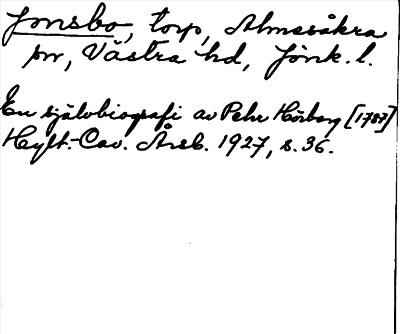 Jonsbo, torp, Almesåkra
sn, Västra hd, Jönk. l.
En självbiografi av Pehr Hörberg [1787]
Hylt.-Cav. Årsb. 1927, s. 36.